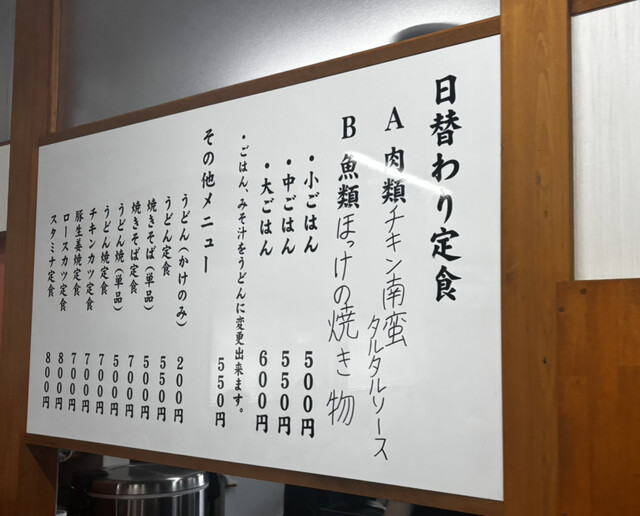 日替わり定食
A 肉類 チキン南蛮
タルタルソース
B 魚類 ほっけの焼き物
・小ごはん 500円
・中ごはん 550円
・大ごはん 600円
・ごはん、みそ汁をうどんに変更出来ます。 550円
その他メニュー
うどん(かけのみ) 200円
うどん定食 550円
焼きそば(単品) 500円
焼きそば定食 700円
うどん焼(単品) 500円
うどん焼定食 700円
チキンカツ定食 700円
豚生姜焼定食 700円
ロースカツ定食 800円
スタミナ定食 800円